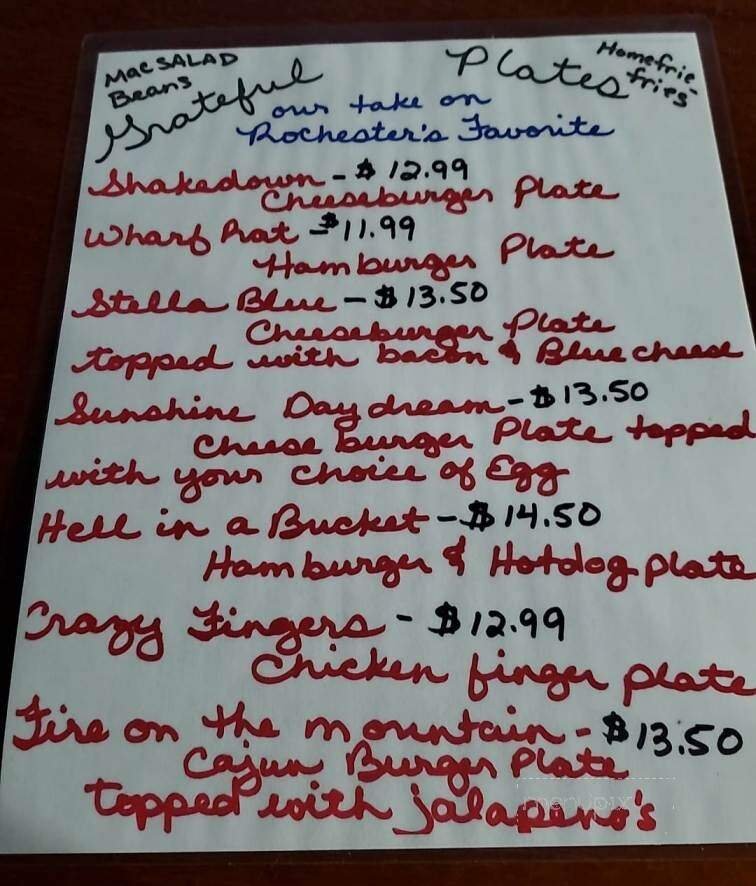 Mac SALAD
Beans
Homefrie-
fries
Grateful Plates
our take on
Rochester's Favorite
Shakedown - $12.99
Cheeseburger Plate
Wharf Rat - $11.99
Hamburger Plate
Stella Blue - $13.50
Cheeseburger Plate
topped with bacon & Blue cheese
Sunshine Daydream - $13.50
Cheese burger Plate topped
with your choice of Egg
Hell in a Bucket - $14.50
Hamburger & Hotdog plate
Crazy Fingers - $12.99
Chicken finger plate
Fire on the mountain - $13.50
Cajun Burger Plate
topped with jalapeno's
menupix